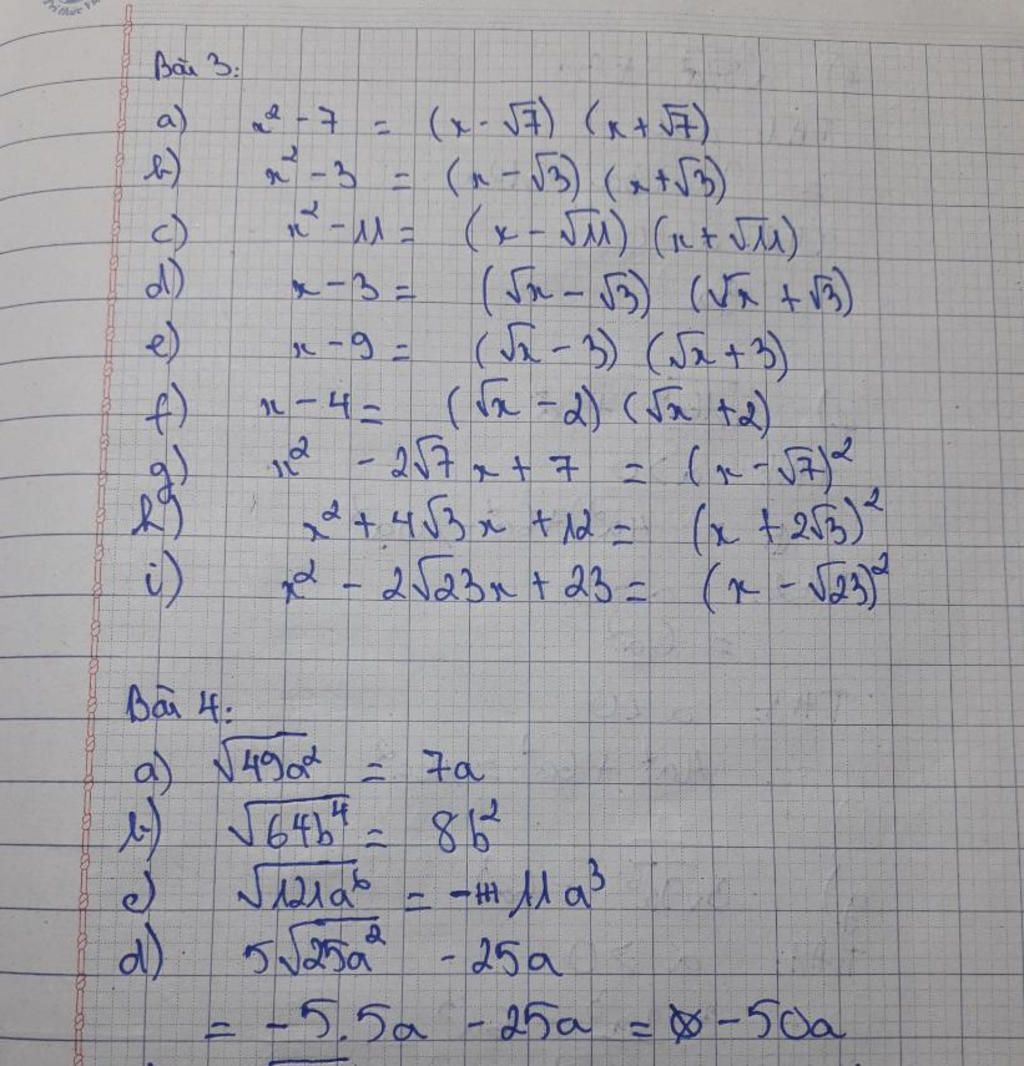 Tri thức V
Bài 3:
a) x² - 7 = (x - √7) (x + √7)
b) x² - 3 = (x - √3) (x + √3)
c) x² - 11 = (x - √11) (x + √11)
d) x - 3 = (√x - √3) (√x + √3)
e) x - 9 = (√x - 3) (√x + 3)
f) x - 4 = (√x - 2) (√x + 2)
g) x² - 2√7 x + 7 = (x - √7)²
h) x² + 4√3 x + 12 = (x + 2√3)²
i) x² - 2√23 x + 23 = (x - √23)²
Bài 4:
a) √(49a²) = 7a
b) √(64b⁴) = 8b²
c) √(121a⁶) = - 11a³
d) 5√(25a²) - 25a
= -5.5a - 25a = -50a